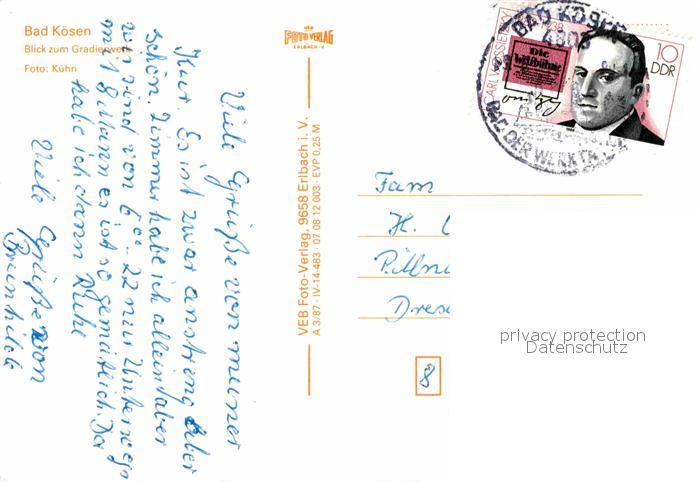 Bad Kösen
Blick zum Gradierwerk
Foto: Kühn
FOTO VERLAG
ERLBACH/V
Viele Grüße von meiner
Kur. Es ist zwar anstreng aber
schön. Zimmer habe ich allein aber
wir sind von 6⁰⁰-22 nur Unterwegs
mit 8 Mann es ist so gemütlich. Da
habe ich dann Ruhe
Viele Grüße von
Brunhilde
VEB Foto-Verlag, 9658 Erlbach i. V.
A 3/87 · IV-14-483 · 07 08 12 003 · EVP 0.25 M
CARL VON OSSIETZKY
Die
Weltbühne
10
DDR
BAD KÖSEN
Fam
H.
Pillni
Dresd
8
privacy protection
Datenschutz